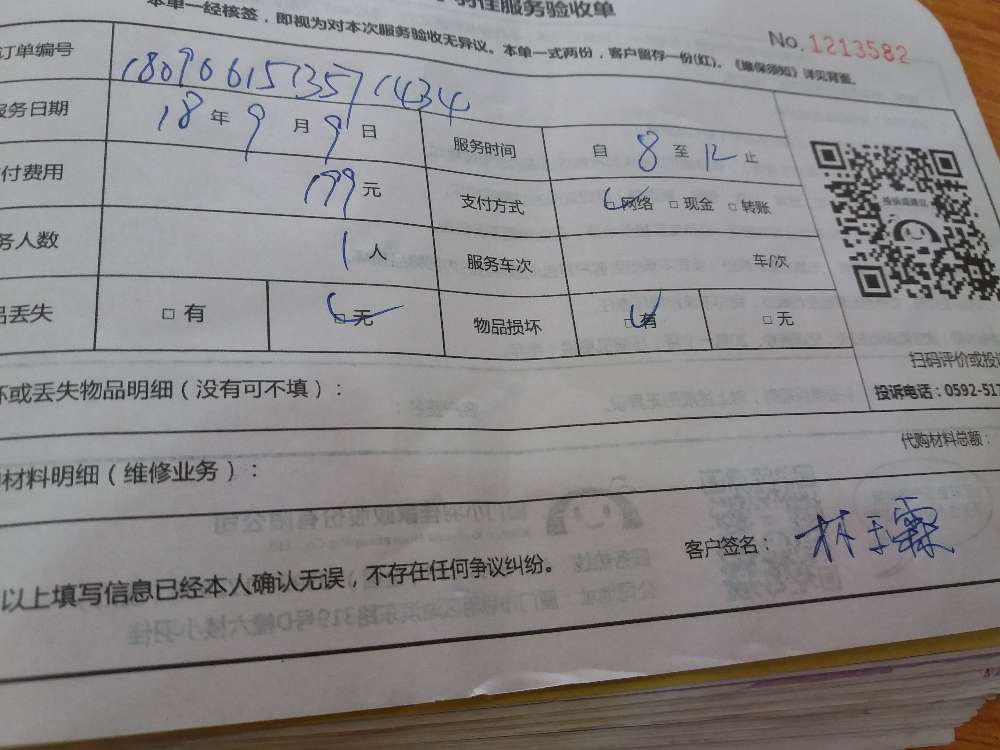 羽佳服务验收单
本单一经核签，即视为对本次服务验收无异议。本单一式两份，客户留存一份(红)。《维保须知》详见背面。
No.1213582
订单编号 1809061513571434
服务日期 18年9月9日 服务时间 自8至12止
付费用 199元 支付方式 □网络 □现金 □转账
务人数 1人 服务车次 车/次
品丢失 □有 □无 物品损坏 □有 □无
扫码评价或投
坏或丢失物品明细（没有可不填）：
投诉电话：0592-517
代购材料总额：
材料明细（维修业务）：
客户签名：林玉霖
以上填写信息已经本人确认无误，不存在任何争议纠纷。